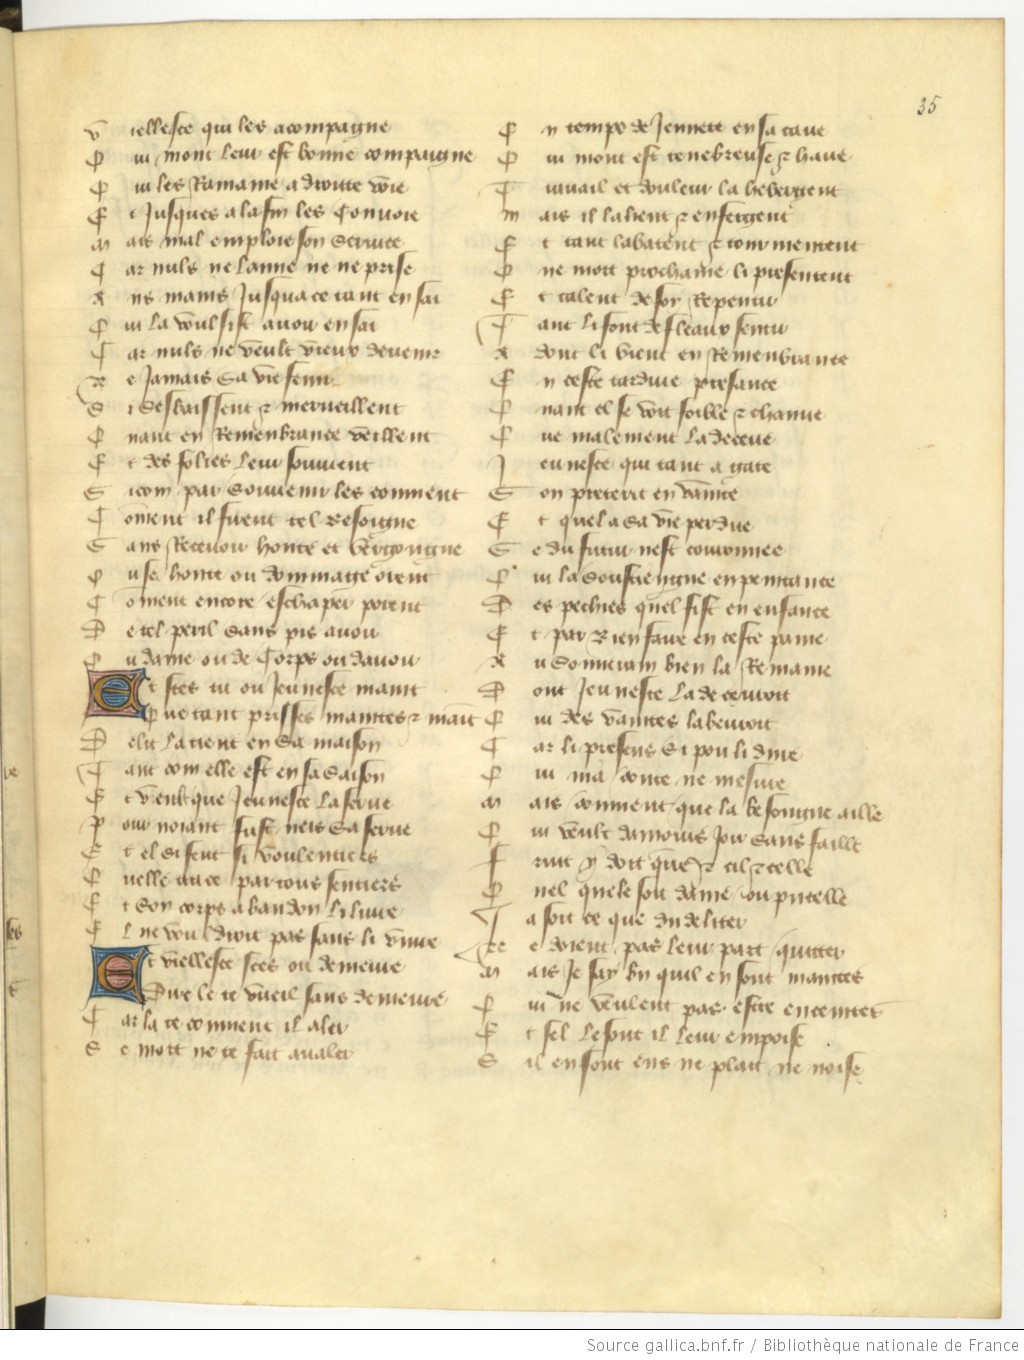 35
Viellesce qui les acompagne
Qui mont leur est bonne compaigne
Qui les Ramaine a droite voie
Et Jusques a la fin les Convoie
Mais mal emploie son Service
Car nuls ne lamne ne ne prise
Au mains Jusqua ce tant en sai
Qui la voulsist avoir en sai
Car nuls ne veult vieux devenir
Ne Jamais Sa vie fenir
Si Sesbaissent et merveillent
Quant en Remenbrance veillent
Et des folies leur souvient
Sicom par Souvenir les convient
Coment il firent tel Besoigne
Sans Recevoir honte et vergongne
Ou se honte ou dommage orent
Coment encore eschaper porent
De tel peril Sans pis avoir
Ou dame ou de Corps ou davoir
Et sces tu ou Jeunesce maint
Que tant prisses maintes et maint
Delit la tient en Sa maison
Tant com elle est en sa Saison
Et veult que Jeunesce la serve
Pour noiant fust neis Sa serve
Et el si fent si voulentiers
Quelle trace par tous sentiers
Et Son corps abandon li livre
El ne voudroit pas sans li vivre
Et viellesce sces ou demeure
Dire le te vueil sans demeure
Car la te convient il aler
Se mort ne te fait avaler
En temps de Jennece en sa cave
Qui mont est tenebreuse et have
Travail et douleur la hebergent
Mais il la lient et enfergent
Et tant la batent et tourmentent
Que mort prochaine li presentent
Et talent de soy Repentir
Tant li font de fleaux sentir
Adont li vient en Remenbrance
En ceste tardive presance
Quant el se voit foible et chanue
Que malement la deceue
Jeunesce qui tant a gate
Son preterit en vanite
Et quel a Sa vie perdue
Se du futur nest couronnee
Qui la Soustiengne en penitance
Des pechies quel fist en enfance
Et par Bien faire en ceste paine
Au Souverain bien la Remaine
Dont Jeunesce la decevoit
Qui des vanites la bevoit
Car li presens Si pou li dure
Qui nia conte ne mesure
Mais conment que la besoingne aille
Qui veult damours Joir Sans faille
Fruit y doit querre et cil et celle
Quel quele soit dame ou pucelle
Ja soit ce que du deliter
Ne doient pas leur part quitter
Mais Je say bien quil en sont maintes
Qui ne veulent pas estre enceintes
Et sel le sont il leur empoise
Si en font ens ne plait ne noise
Source gallica.bnf.fr / Bibliothèque nationale de France